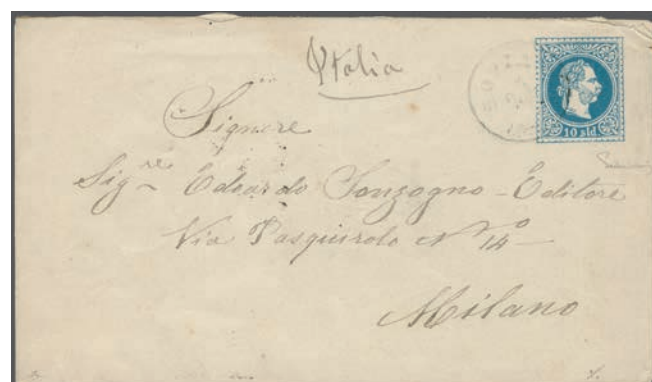 Italia
10 sld
Signore
Sig.re Edoardo Sonzogno - Editore
Via Pasquirolo No 14
Milano